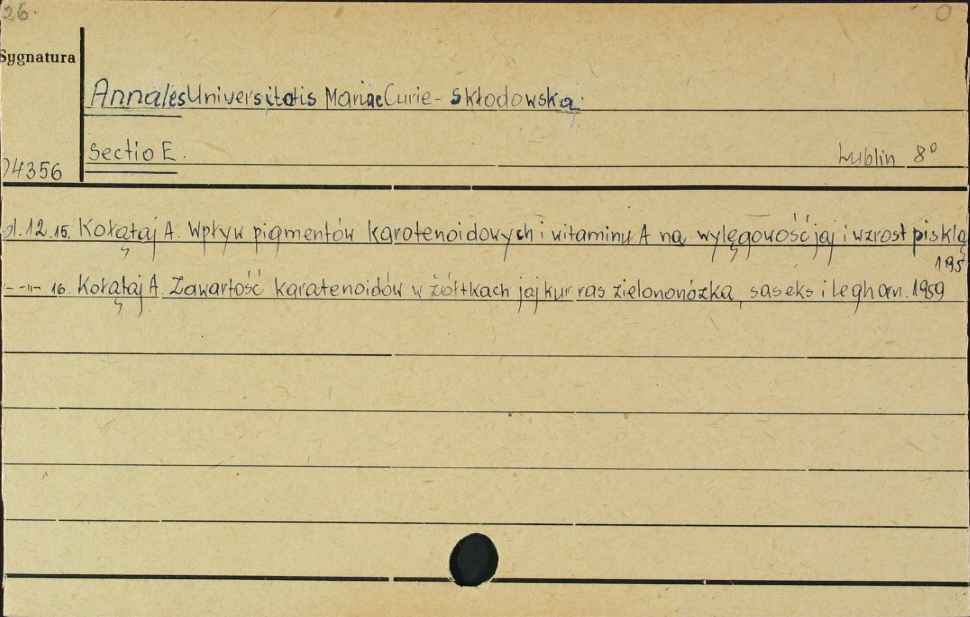 26.
0
Sygnatura
Annales Universitatis Mariae Curie-Skłodowska.
Sectio E.
Lublin 8°
4356
12.15. Kołątaj A. Wpływ pigmentów karotenoidowych i witaminy A na wylęgowość jaj i wzrost piskląt
195
-"- 16. Kołątaj A. Zawartość karatenoidów w żółtkach jaj kur ras zielononózka, saseks i leghorn. 1959